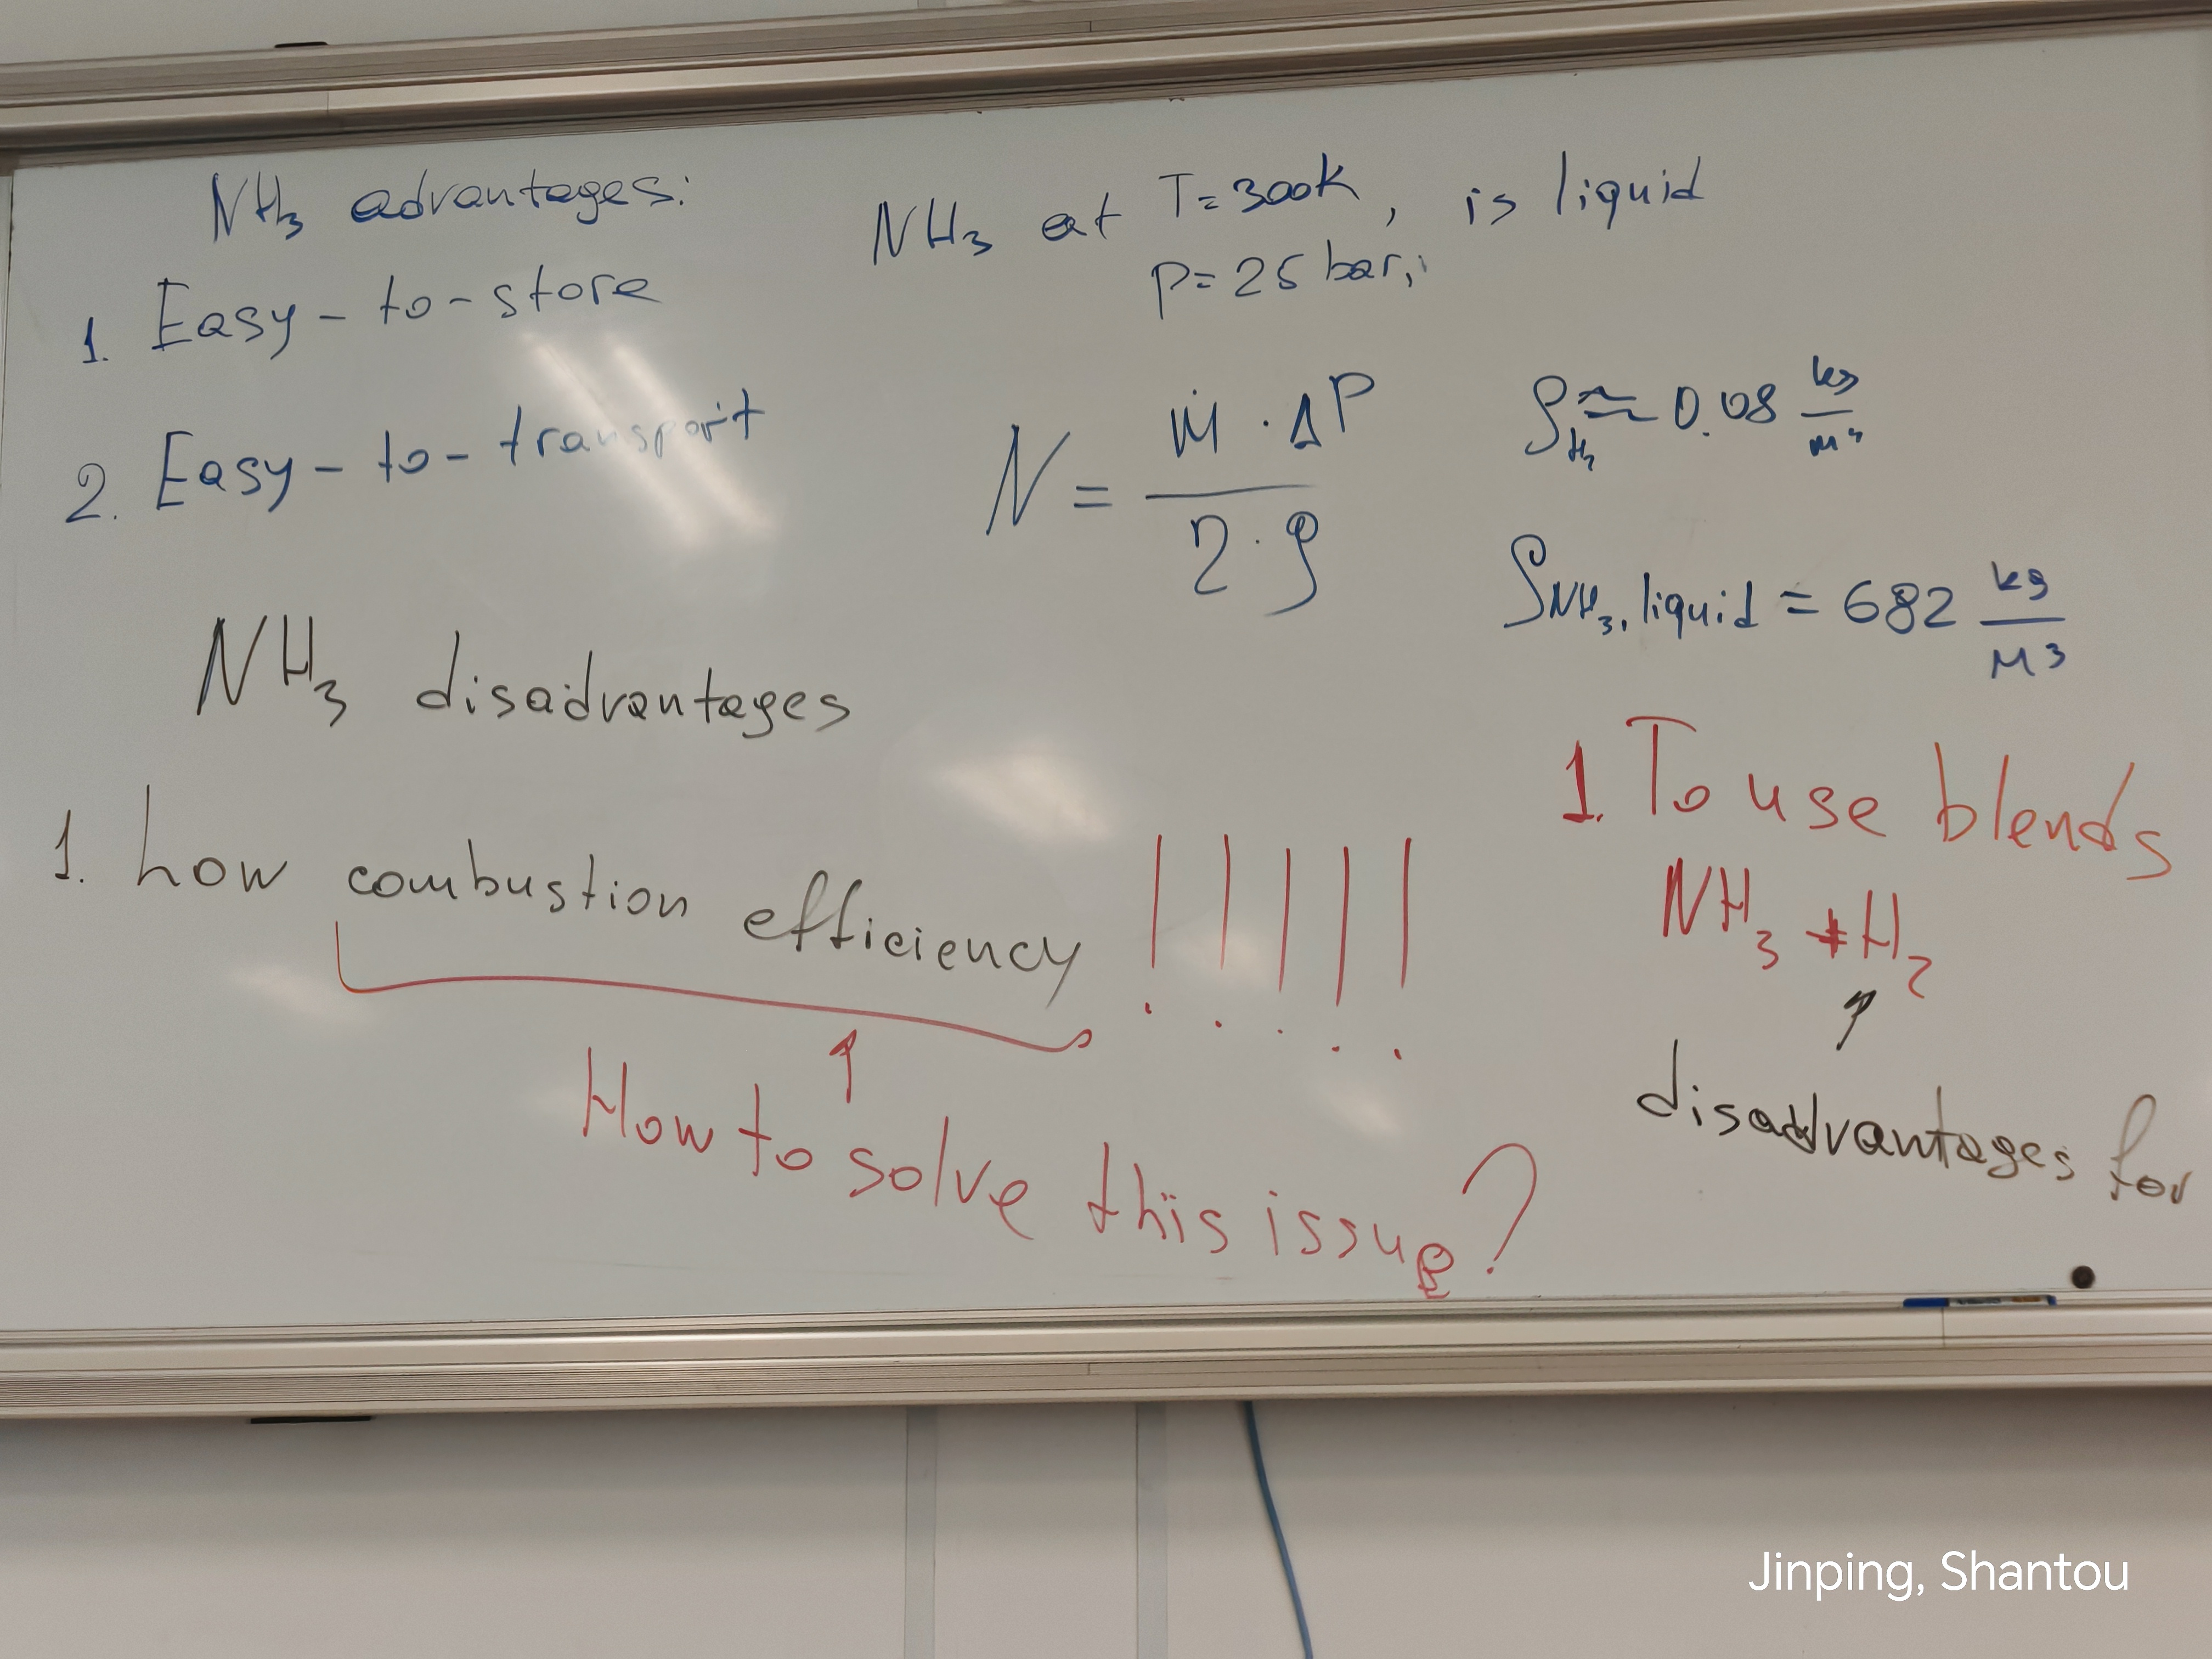 NH₃ advantages:
1. Easy-to-store
2. Easy-to-transport
NH₃ at T=300K, is liquid
P=25 bar,
N = ṁ · ΔP / 2 · ρ
ρH₂ ≈ 0.08 kg/m³
ρNH₃, liquid = 682 kg/m³
NH₃ disadvantages
1. Low combustion efficiency !!!!!
How to solve this issue?
1. To use blends
NH₃ + H₂
disadvantages for
Jinping, Shantou